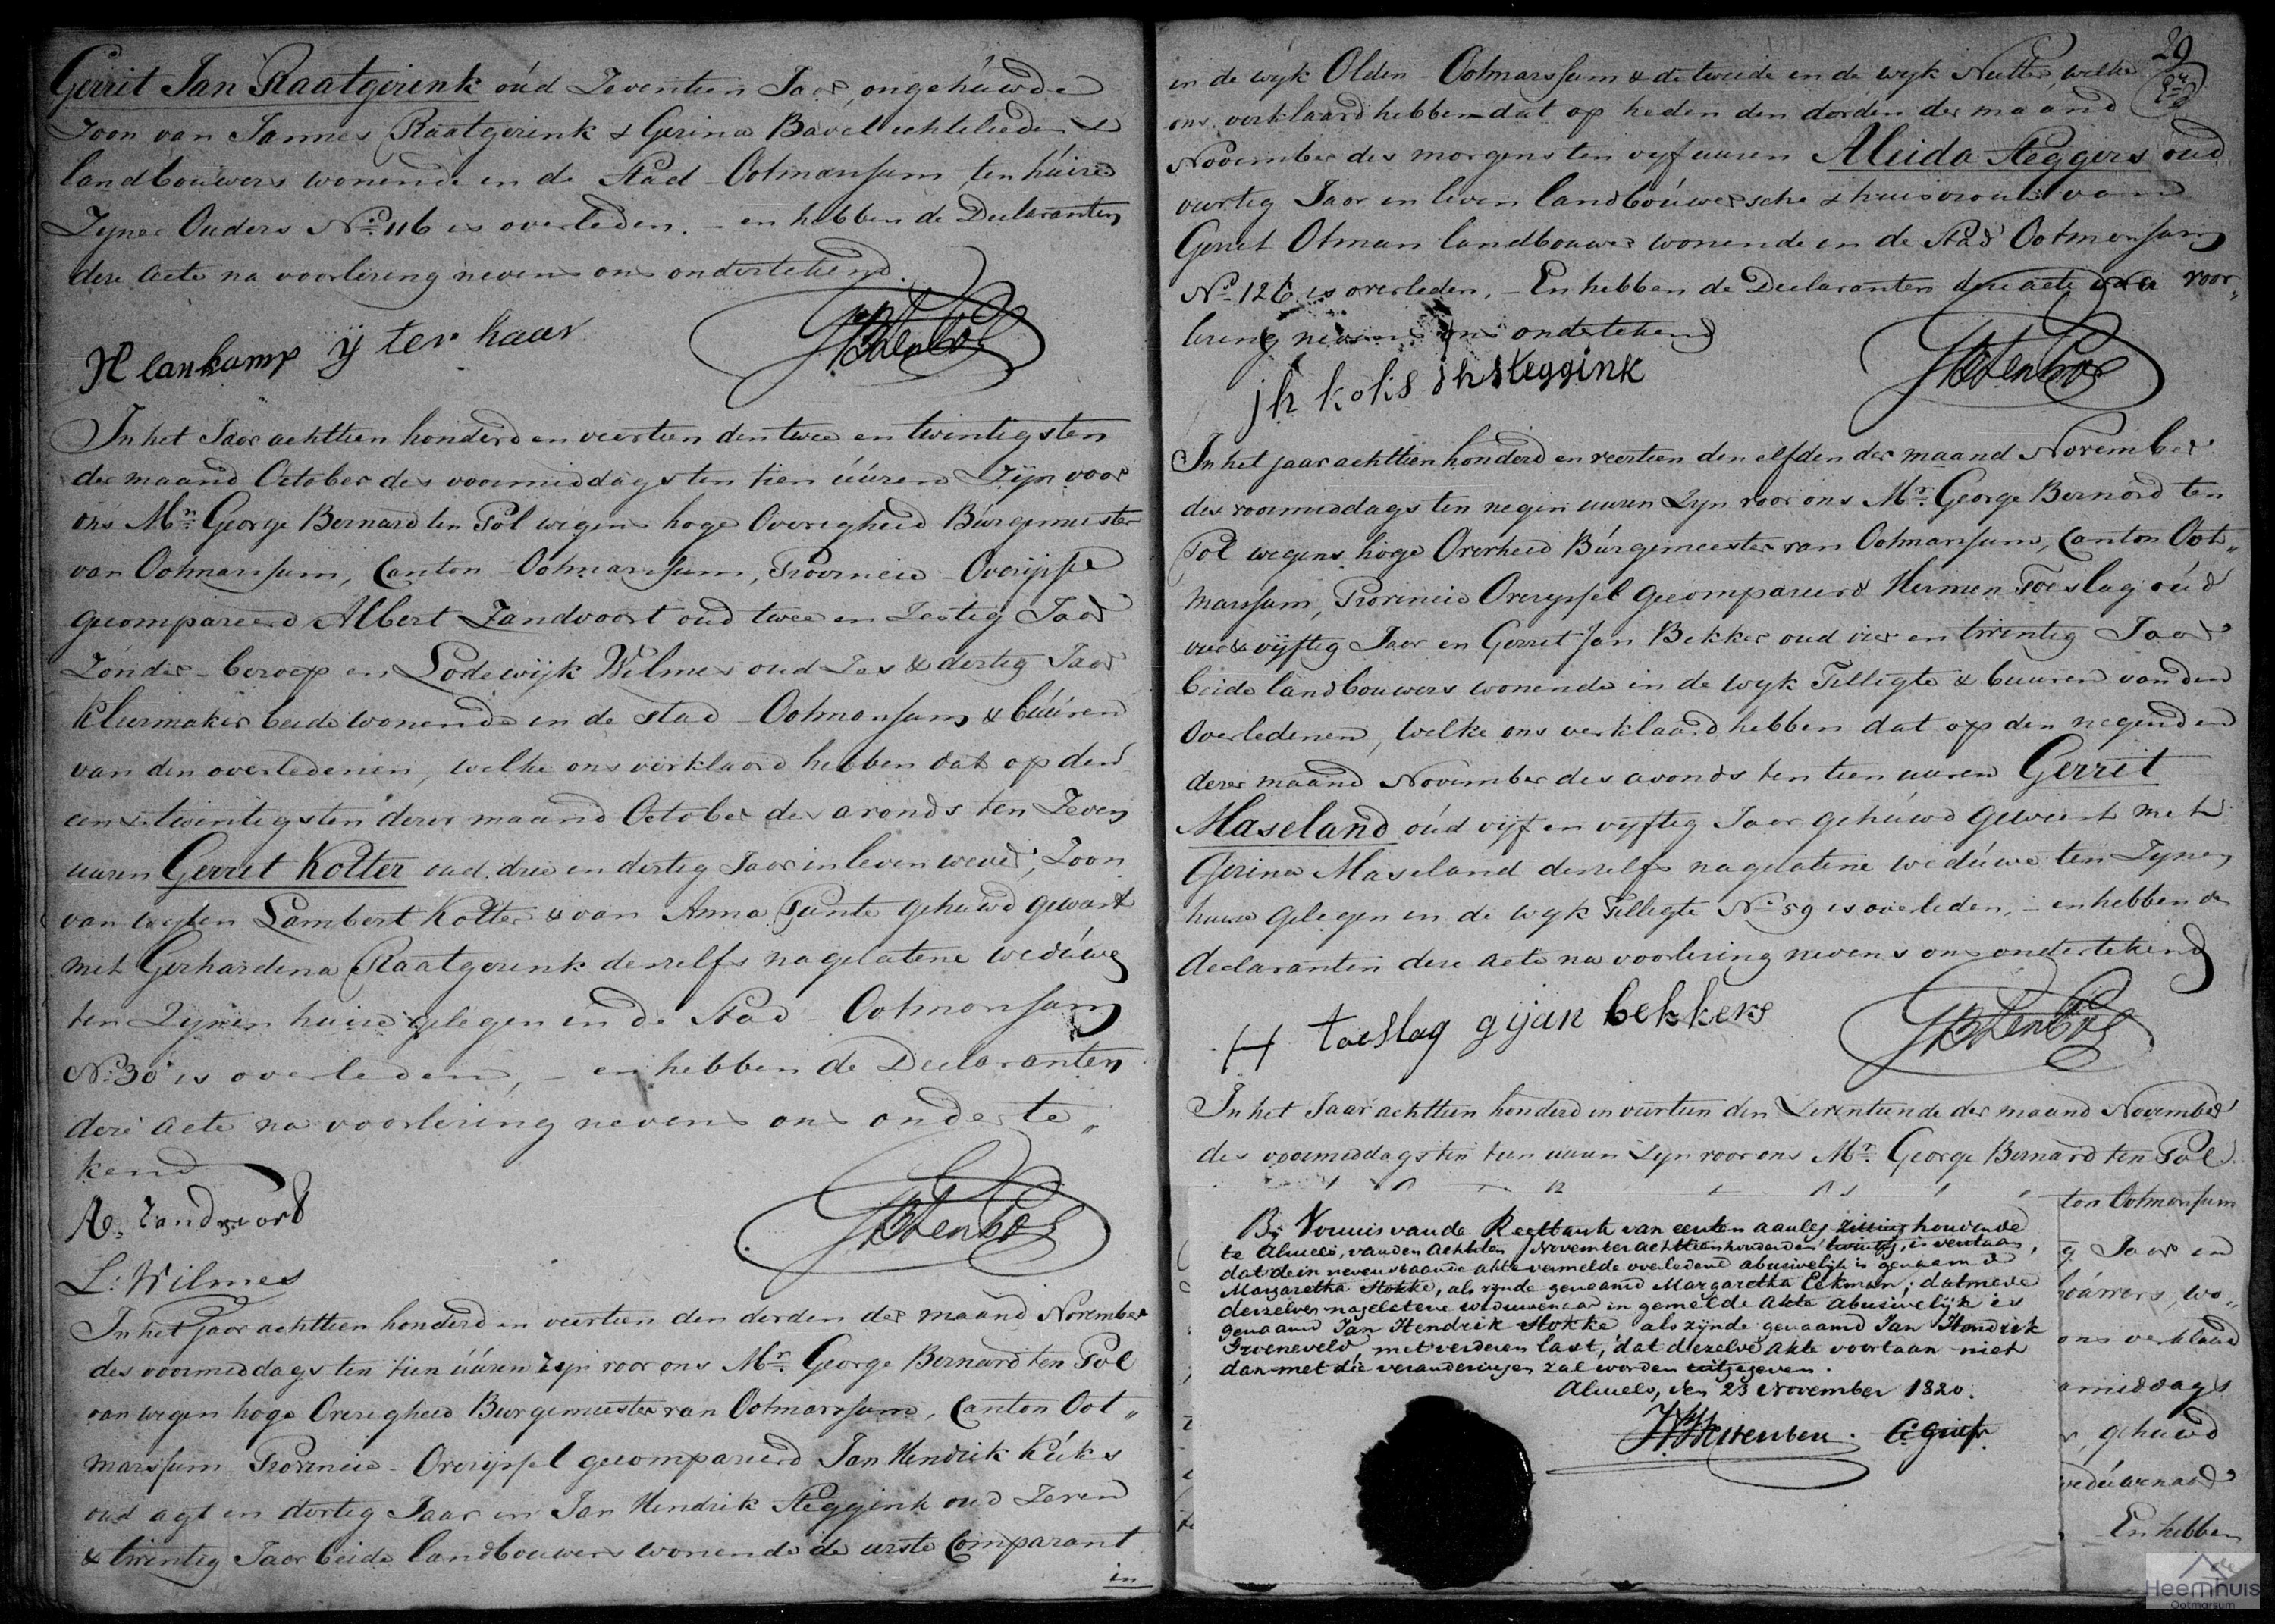 Gerrit Jan Raatgerink oud Zeventien Jaar, ongehuwde
Zoon van Jannes Raatgerink & Gerina Bavel echtelieden &
landbouwers wonende in de Stad Ootmarssum, ten huize
Zyner Ouders No. 116 is overleden. – en hebben de Declaranten
deze acte na voorlezing nevens ons ondertekend.
H lankamp ÿ ter haar
GB ten Pol
In het Jaar achttien honderd en veertien den twee en twintigsten
der maand October des voormiddags ten tien uuren Zijn voor
ons Mr. George Bernard ten Pol wegens hoge Overigheid Burgemeester
van Ootmarssum, Canton Ootmarssum, Provincie Overijssel
gecompareerd Albert Zandvoort oud twee en Zestig Jaar
Zonder beroep en Lodewijk Wilmes oud Zes & dertig Jaar
kleermaker beide wonende in de stad Ootmarssum & buuren
van den overledenen, welke ons verklaard hebben dat op den
een & twintigsten dezer maand October des avonds ten Zeven
uuren Gerrit Kotter oud drie en dertig Jaar in leven wever, Zoon
van wylen Lambert Kotter & van Anna Punte gehuwd geweest
met Gerhardina Raatgerink deszelfs nagelatene weduwe
ten Zynen huize gelegen in de Stad Ootmarssum
No. 30 is overleden, – en hebben de Declaranten
deze acte na voorlezing nevens ons onderte„
kend
A. Zandvoort
GB ten Pol
L: Wilmes
In het Jaar achttien honderd en veertien den derden der maand November
des voormiddags ten tien uuren zyn voor ons Mr. George Bernard ten Pol
van wegen hoge Overigheid Burgemeester van Ootmarssum, Canton Oot„
marssum Provincie Overijssel gecompareerd Jan Hendrik Kuks
oud agt en dertig Jaar en Jan Hendrik Steggink oud Zeven
& twintig Jaar beide landbouwers wonende de eerste Comparant
in
29
in de wyk Olden Ootmarssum & de tweede in de wyk Nutter welke
ons verklaard hebben dat op heden den derden der maand
November des morgens ten vyf uuren Aleida Steggers oud
veertig Jaar in leven landbouwersche & huisvrouw van
Gerrit Otman landbouwer wonende in de Stad Ootmarssum
No. 126 is overleden. – En hebben de Declaranten deze acte na voor„
lezing nevens ons ondertekend
jh koks jh steggink
GB ten Pol
In het jaar achttien honderd en veertien den elfden der maand November
des voormiddags ten negen uuren Zyn voor ons Mr. George Bernard ten
Pol wegens hoge Overheid Burgemeester van Ootmarssum, Canton Oot„
marssum, Provincie Overyssel gecompareerd Hermen Toeslag oud
vier & vijftig Jaar en Gerret Jan Bekker oud vier en twintig Jaar
beide landbouwers wonende in de wyk Tilligte & buuren van den
Overledenen, welke ons verklaard hebben dat op den negenden
dezer maand November des avonds ten tien uuren Gerrit
Maseland oud vijf en vyftig Jaar gehuwd geweest met
Gerina Maseland deszelfs nagelatene weduwe ten Zynen
huize gelegen in de wyk Tilligte No. 59 is overleden, – en hebben de
declaranten deze acte na voorlezing nevens ons ondertekend
H toeslag g jan bekkers
GB ten Pol
In het Jaar achttien honderd en veertien den Zeventiende der maand November
des voormiddags ten tien uuren Zyn voor ons Mr. George Bernard ten Pol
By Vonnis van de Regtbank van eersten aanleg zitting houdende
te Almelo, van den Achtsten November achttienhonderd en twintig, is verstaan,
dat de in nevenstaande akte vermelde overledene abusivelijk is genaamd
Margaretha Stokke, als zynde genaamd Margaretha Eekman; dat mede
derzelver nagelatene weduwenaar in gemelde akte abusivelijk is
genaamd Jan Hendrik Stokke als zynde genaamd Jan Hendrik
Groeneveld, met verderen last, dat dezelve akte voortaan niet
dan met die veranderingen zal worden uitgegeven.
Almelo, den 23 November 1820.
Griefr.
ton Ootmarssum
g Jaar en
bouwers, wo„
ons verklaard
amiddags
r, gehuwd
weduwenaar
En hebben
de
Heemhuis
Ootmarsum